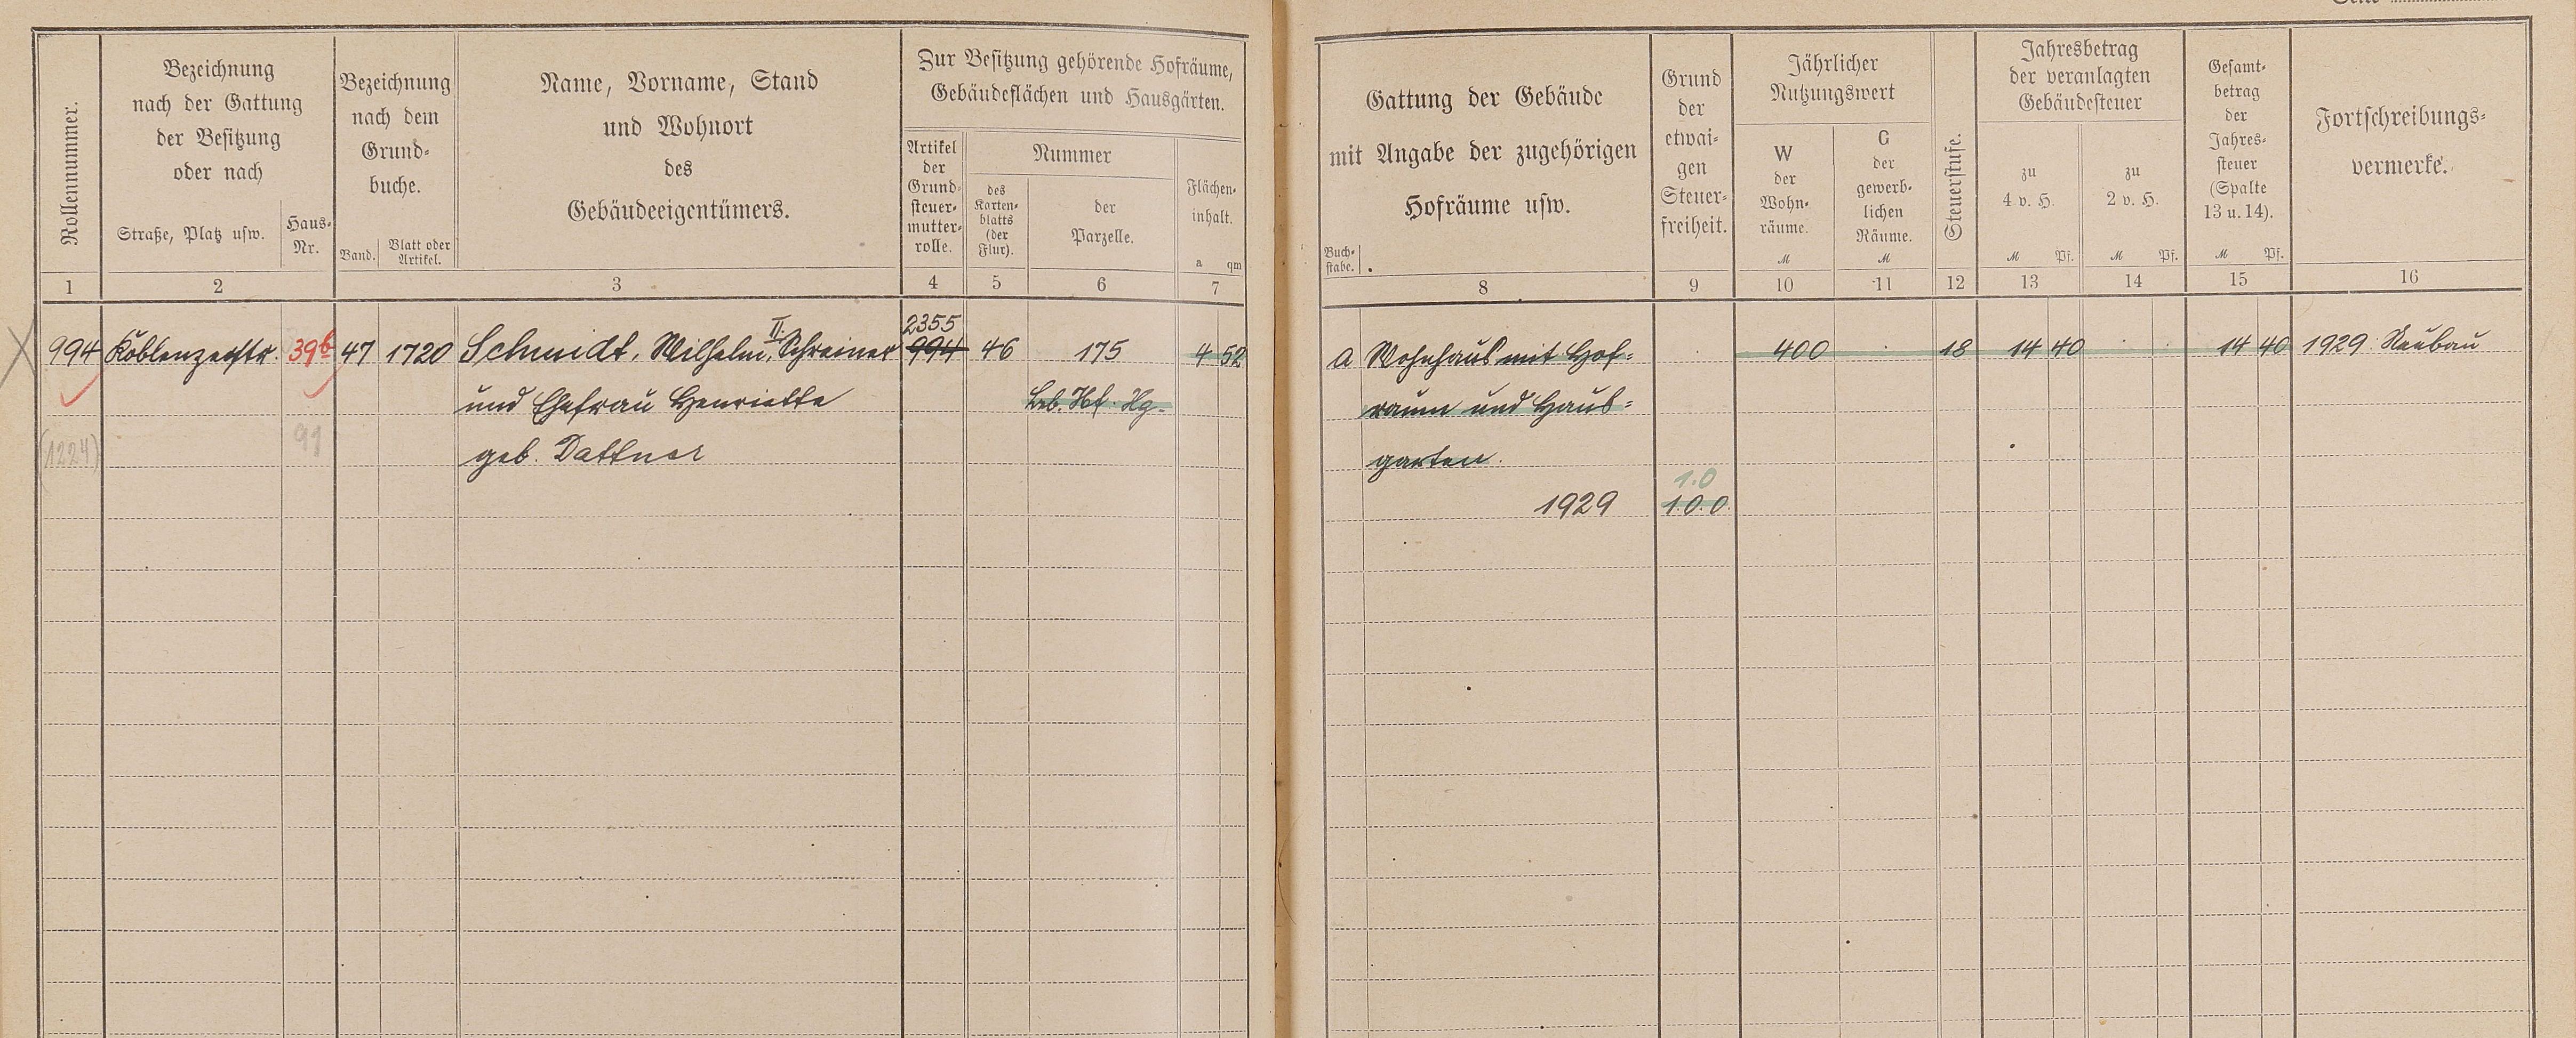 Seite
Rollennummer.
Bezeichnung
nach der Gattung
der Besitzung
oder nach
Straße, Platz usw.
Haus-
Nr.
Bezeichnung
nach dem
Grund-
buche.
Band.
Blatt oder
Artikel.
Name, Vorname, Stand
und Wohnort
des
Gebäudeeigentümers.
Zur Besitzung gehörende Hofräume,
Gebäudeflächen und Hausgärten.
Artikel
der
Grund-
steuer-
mutter-
rolle.
Nummer
des
Karten-
blatts
(der
Flur).
der
Parzelle.
Flächen-
inhalt.
a qm
1 2 3 4 5 6 7
2355
994 Koblenzerstr. 39b 47 1720 Schmidt, Wilhelm, II. Schreiner 994 46 175 4 52
und Ehefrau Henriette Hf. Hg.
(1224) 99 geb. Dattner
Gattung der Gebäude
mit Angabe der zugehörigen
Hofräume usw.
Buch-
stabe.
Grund
der
etwai-
gen
Steuer-
freiheit.
Jährlicher
Nutzungswert
W
der
Wohn-
räume.
M
G
der
gewerb-
lichen
Räume.
M
Steuerstufe.
Jahresbetrag
der veranlagten
Gebäudesteuer
zu
4 v. H.
M Pf.
zu
2 v. H.
M Pf.
Gesamt-
betrag
der
Jahres-
steuer
(Spalte
13 u. 14).
M Pf.
Fortschreibungs-
vermerke.
8 9 10 11 12 13 14 15 16
a Wohnhaus mit Hof= 400 18 14 40 14 40 1929 Neubau
raum und Haus=
garten.
1.0
1929 10.0.